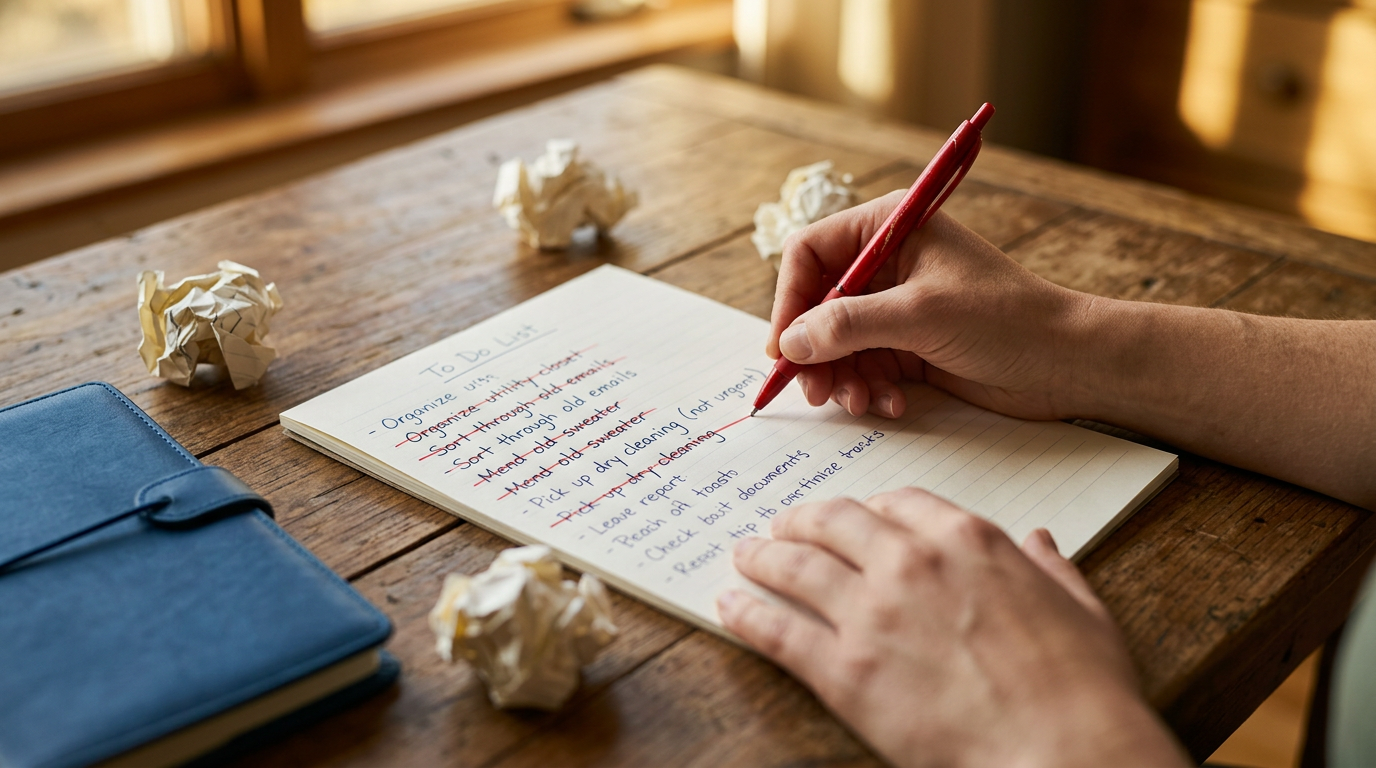 To Do List
- Organize
- Organize utility closet
- Sort through old emails
- Sort through old emails
- Mend old sweater
- Mend old sweater
- Pick up dry cleaning (not urgent)
- Pick up dry cleaning
- Leave report
- Reach off toasts
- Check bat documents
- Repot tip to